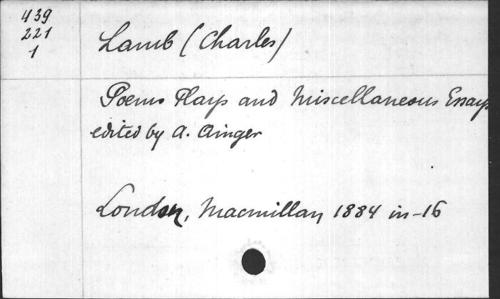 439
221
1
Lamb (Charles)
Poems Plays and Miscellaneous Essays
edited by A. Ainger
London, Macmillan, 1884 in-16